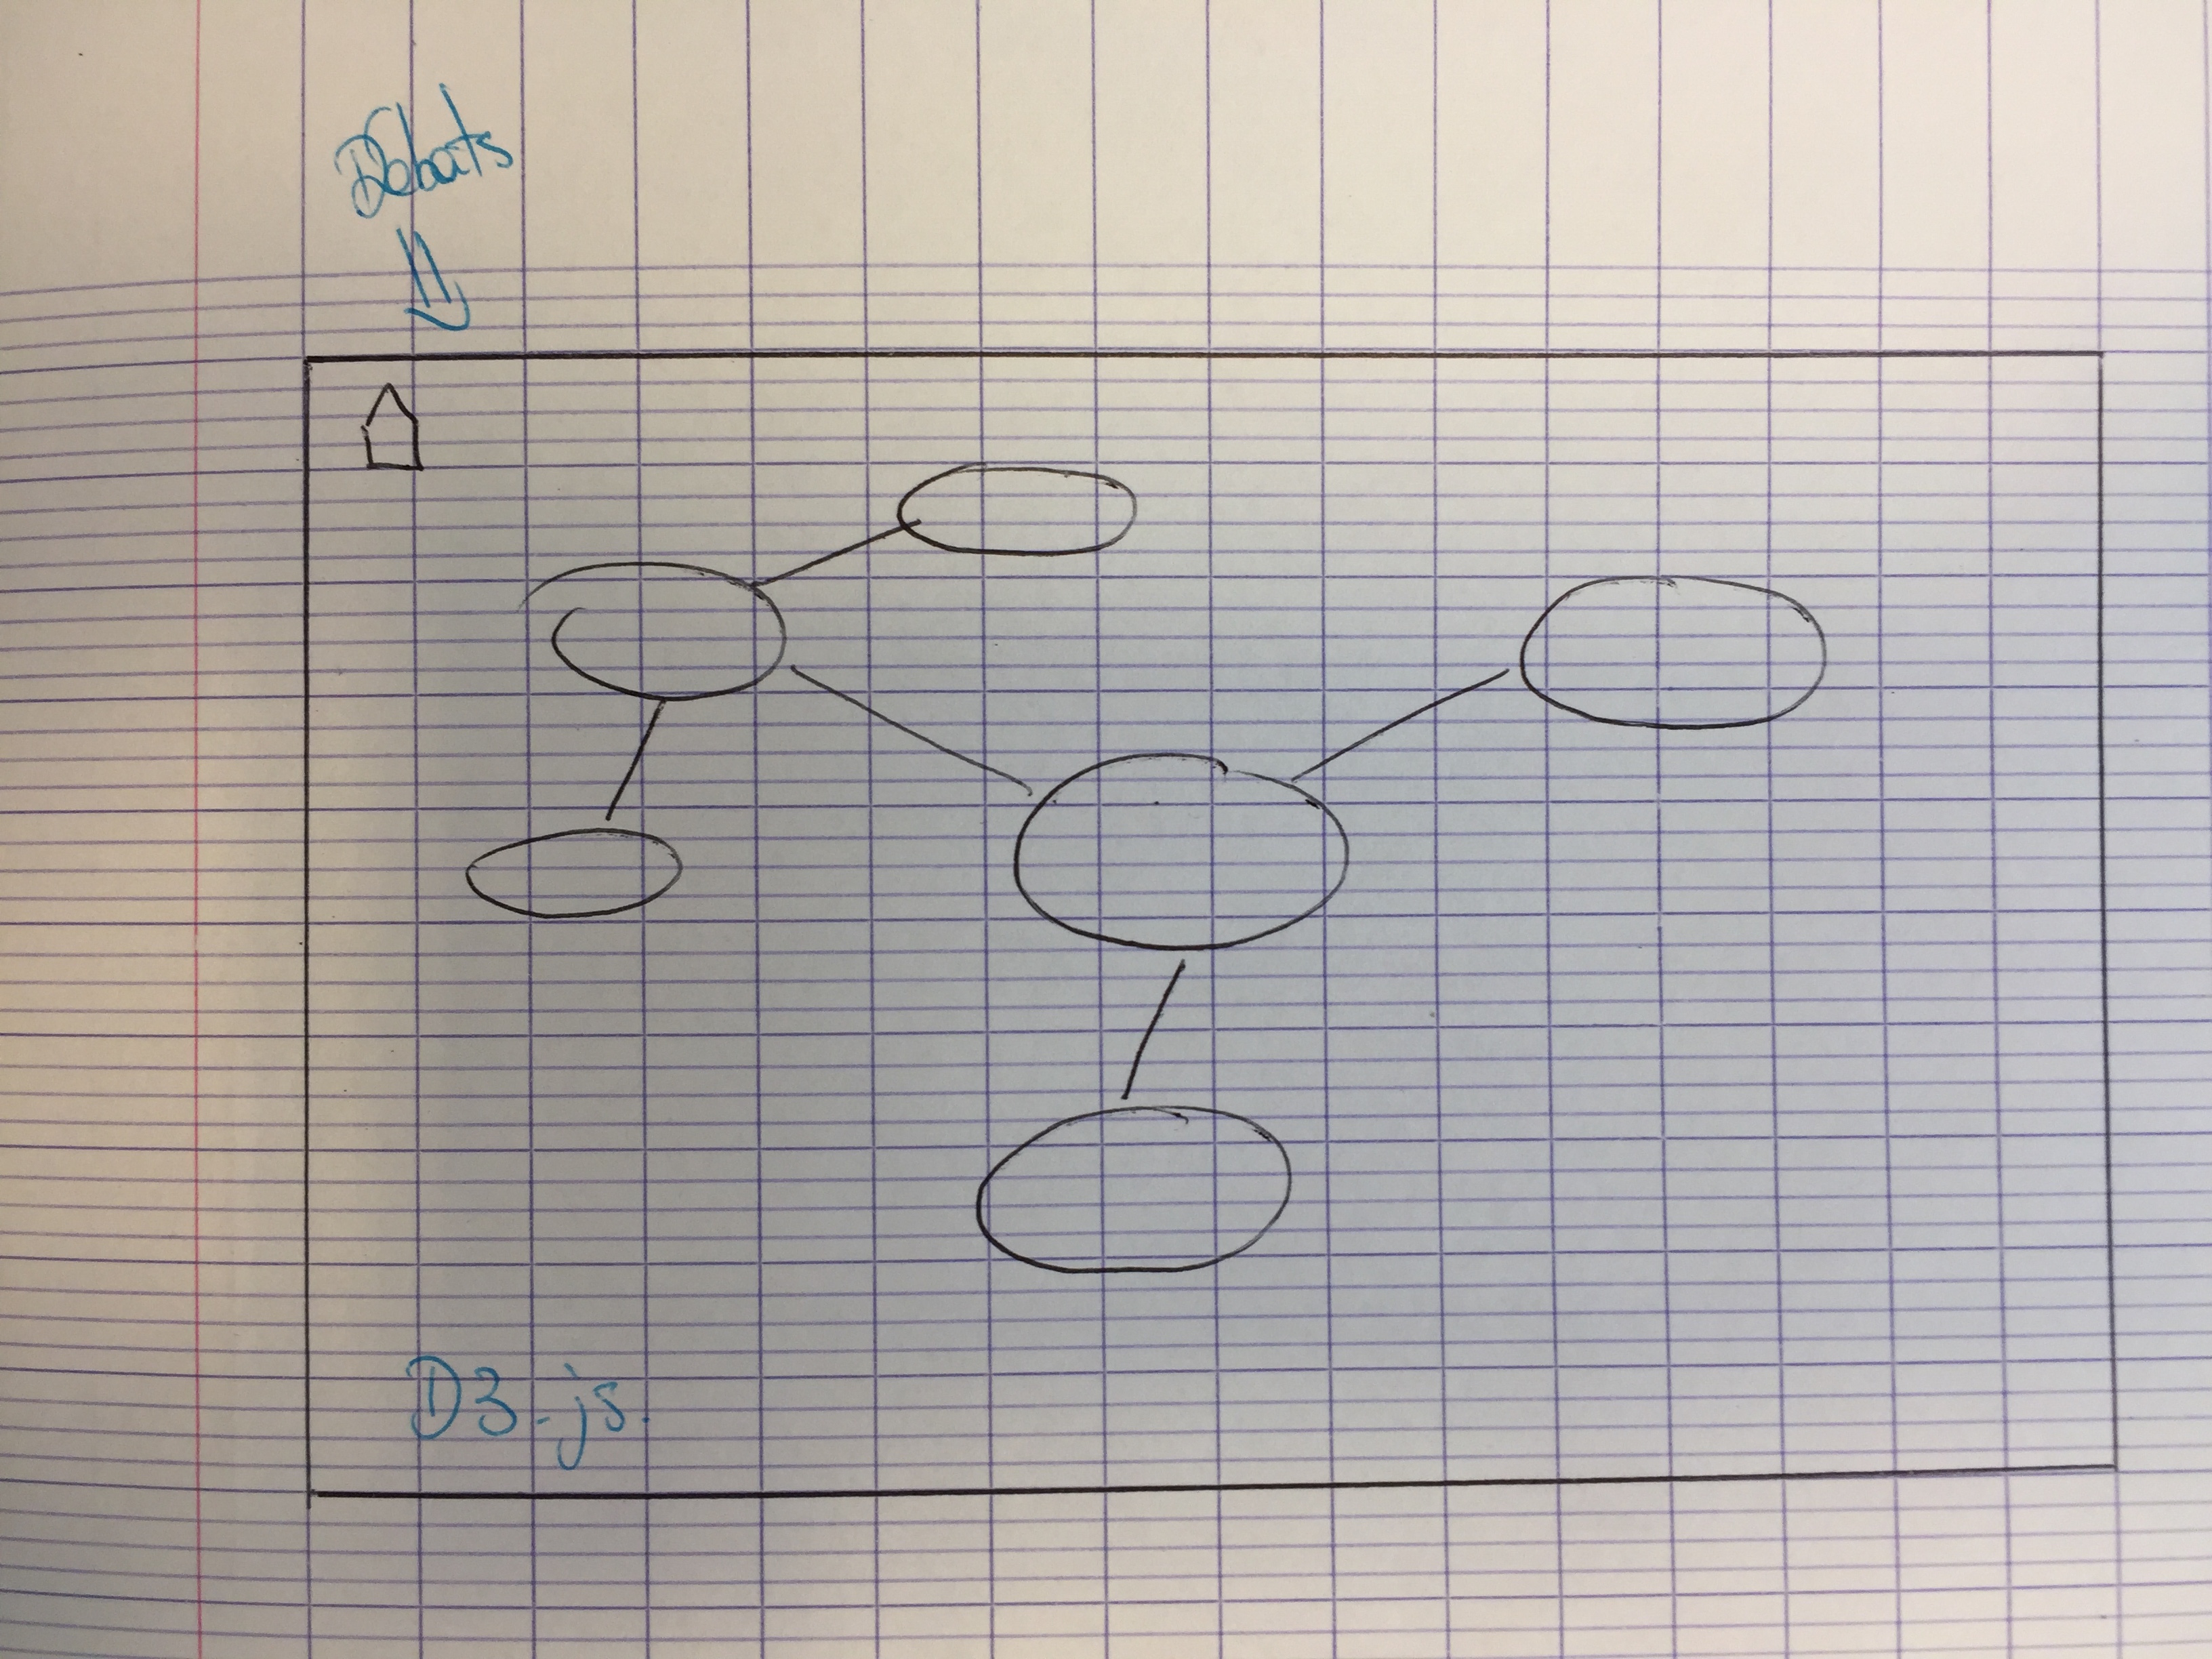 Débats
D3.js.